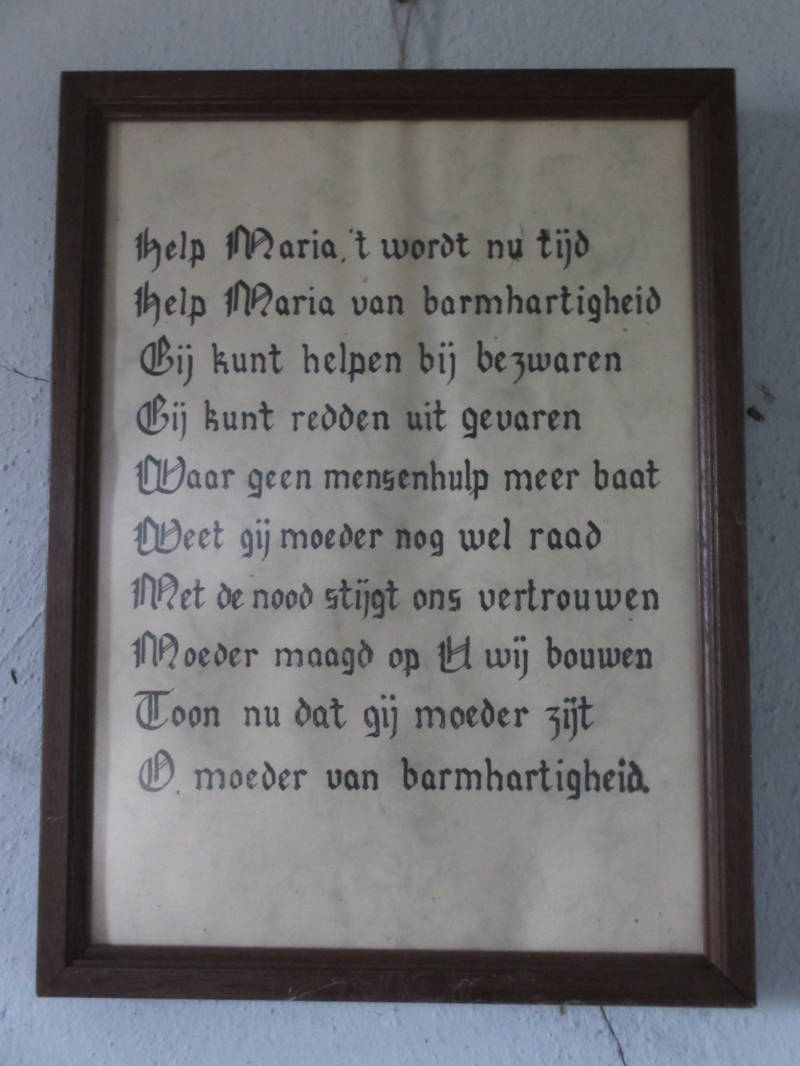 Help Maria,'t wordt nu tijd
Help Maria van barmhartigheid
Gij kunt helpen bij bezwaren
Gij kunt redden uit gevaren
Waar geen mensenhulp meer baat
Weet gij moeder nog wel raad
Met de nood stijgt ons vertrouwen
Moeder maagd op U wij bouwen
Toon nu dat gij moeder zijt
O, moeder van barmhartigheid.